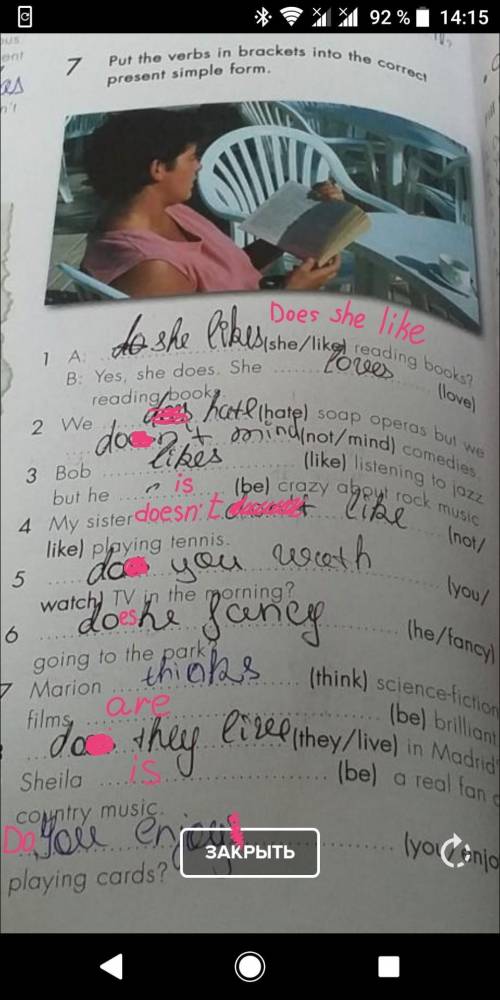 92 % 14:15
7 Put the verbs in brackets into the correct
present simple form.
Does she like
1 A: do she likes (she/like) reading books?
B: Yes, she does. She loves (love)
reading books.
2 We hate (hate) soap operas but we
don't mind (not/mind) comedies.
3 Bob likes (like) listening to jazz
but he is (be) crazy about rock music
4 My sister doesn't like (not/
like) playing tennis.
5 do you wath (you/
watch) TV in the morning?
6 does he fancy (he/fancy)
going to the park?
7 Marion thinks (think) science-fiction
films are (be) brilliant
do they live (they/live) in Madrid?
Sheila is (be) a real fan o
country music.
Do you enjoy (you/enjo
playing cards?
ЗАКРЫТЬ